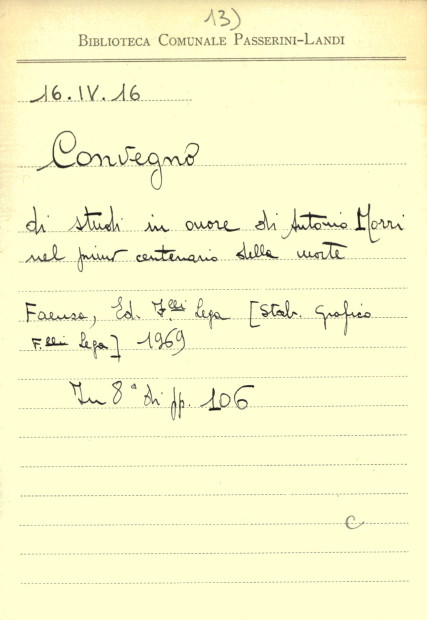 13)
BIBLIOTECA COMUNALE PASSERINI-LANDI
16.IV.16
Convegno
di studi in onore di Antonio Morri
nel primo centenario della morte
Faenza, Ed. F.lli Lega [Stab. Grafico
F.lli Lega] 1969
In 8° di pp. 106
C